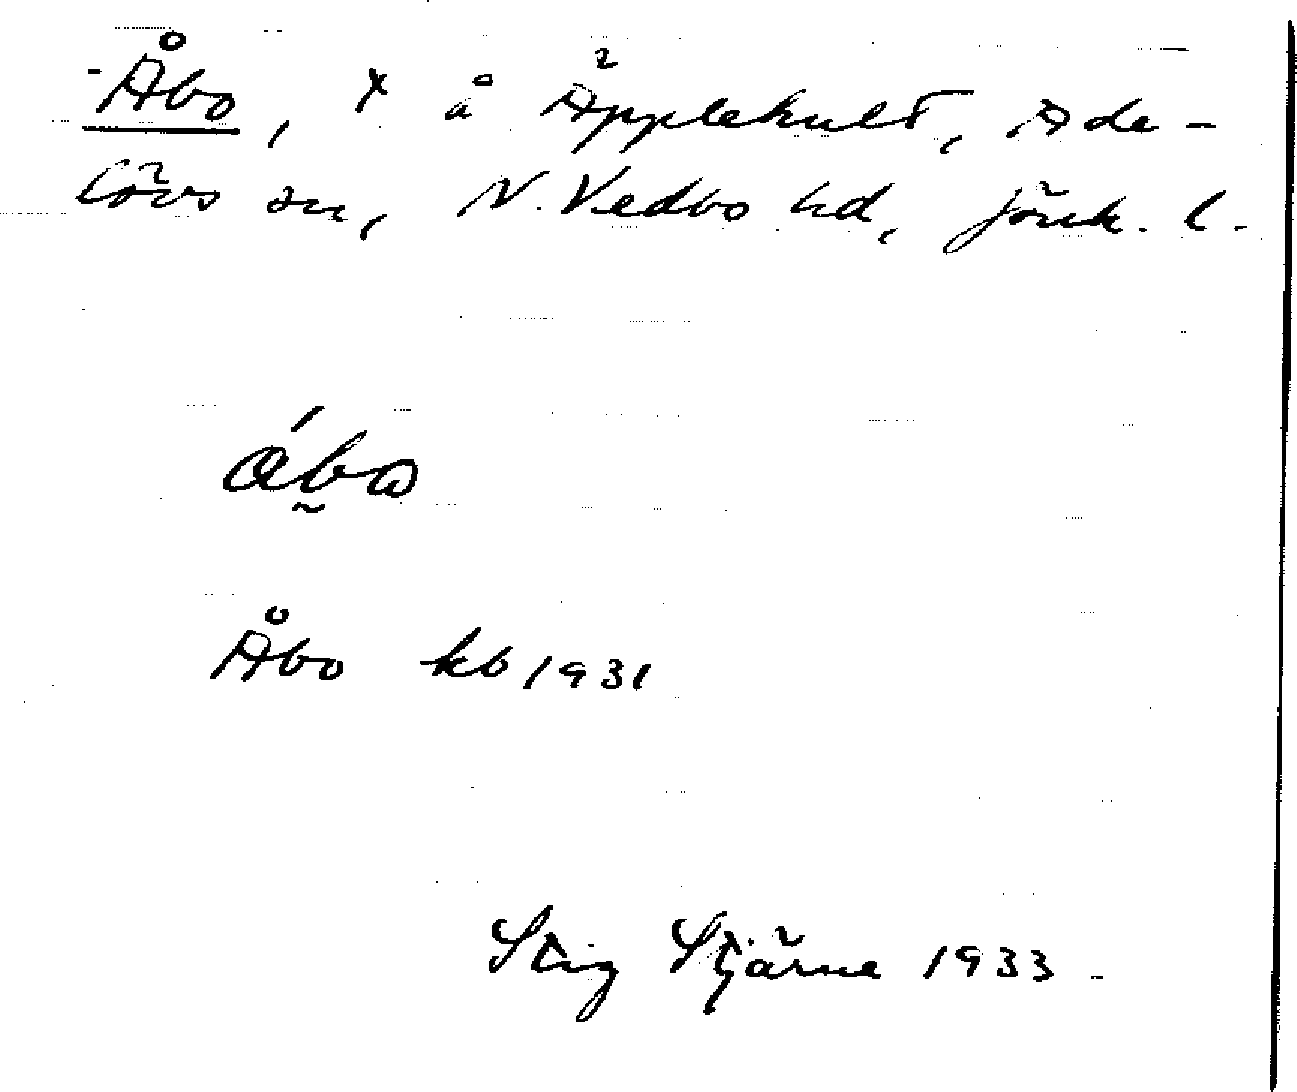 Åbo, x å Äpplekult, Ade-
lövs sn, N. Vedbo hd, Jönk. l.
Åbo kb 1931
Stig Stjärne 1933